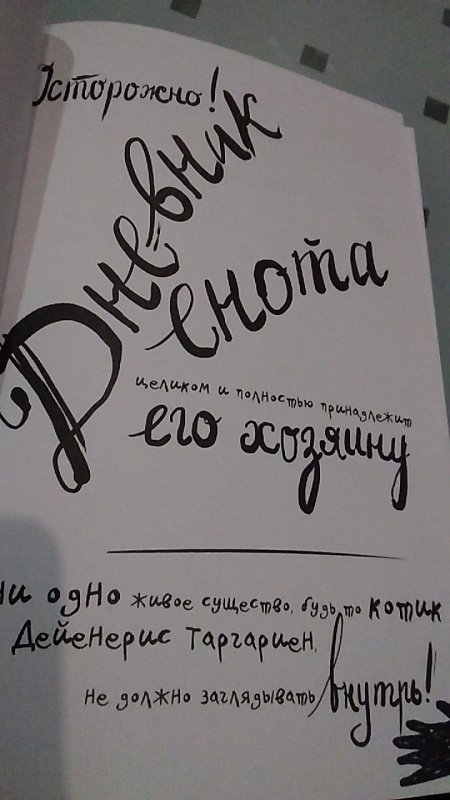 Осторожно!
Дневник
енота
целиком и полностью принадлежит
его хозяину
Ни одно живое существо, будь то котик
Дейенерис Таргариен,
не должно заглядывать внутрь!